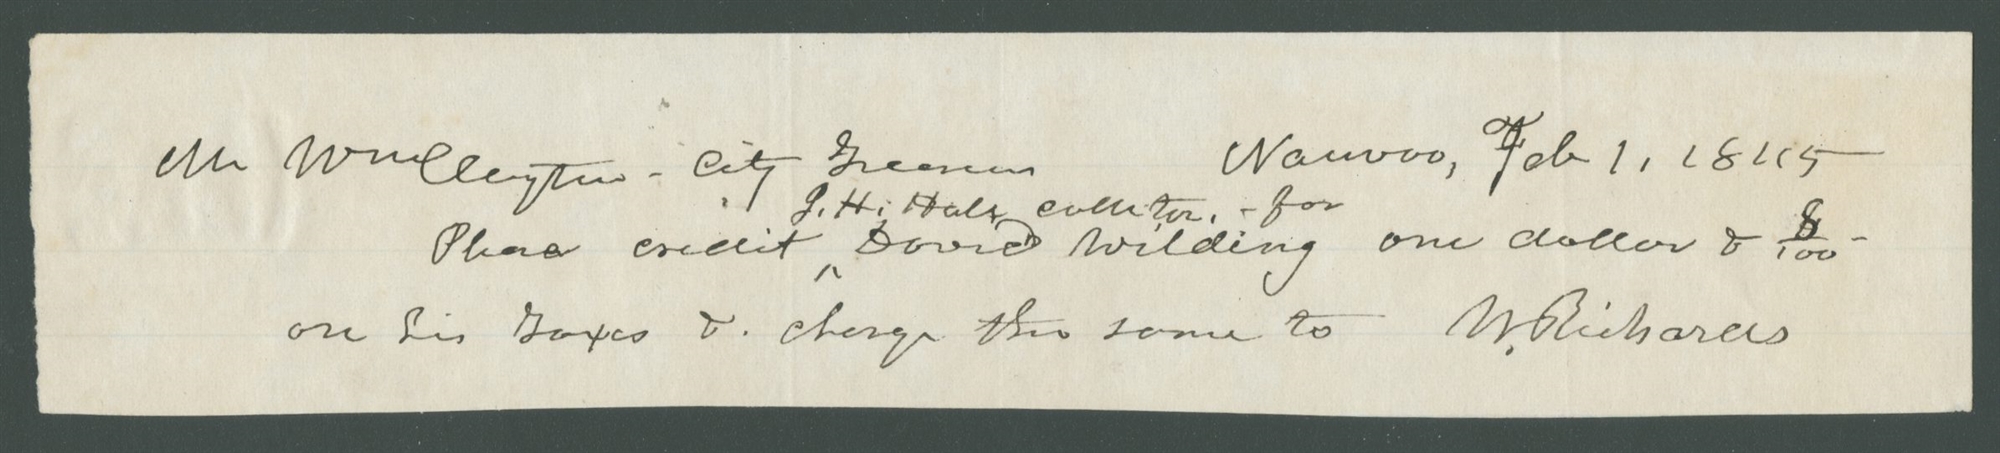 Mr Wm Clayton - City Treasurer Nauvoo, Feb 1, 1845
J. H. Hale collector, - for
Please credit ^ David Wilding one dollar & 8/100 -
on his Taxes &. charge the same to W. Richards